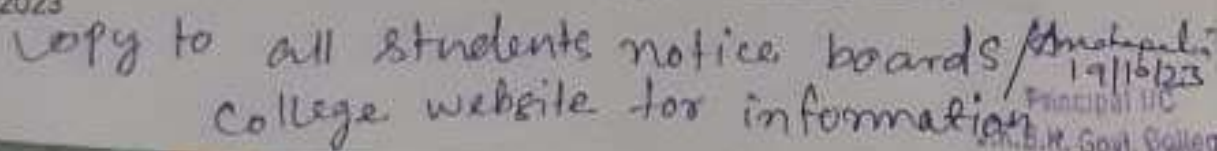 2023
Copy to all students notice boards/
19/10/23
college website for information
Principal I/C
B.M. Govt. College